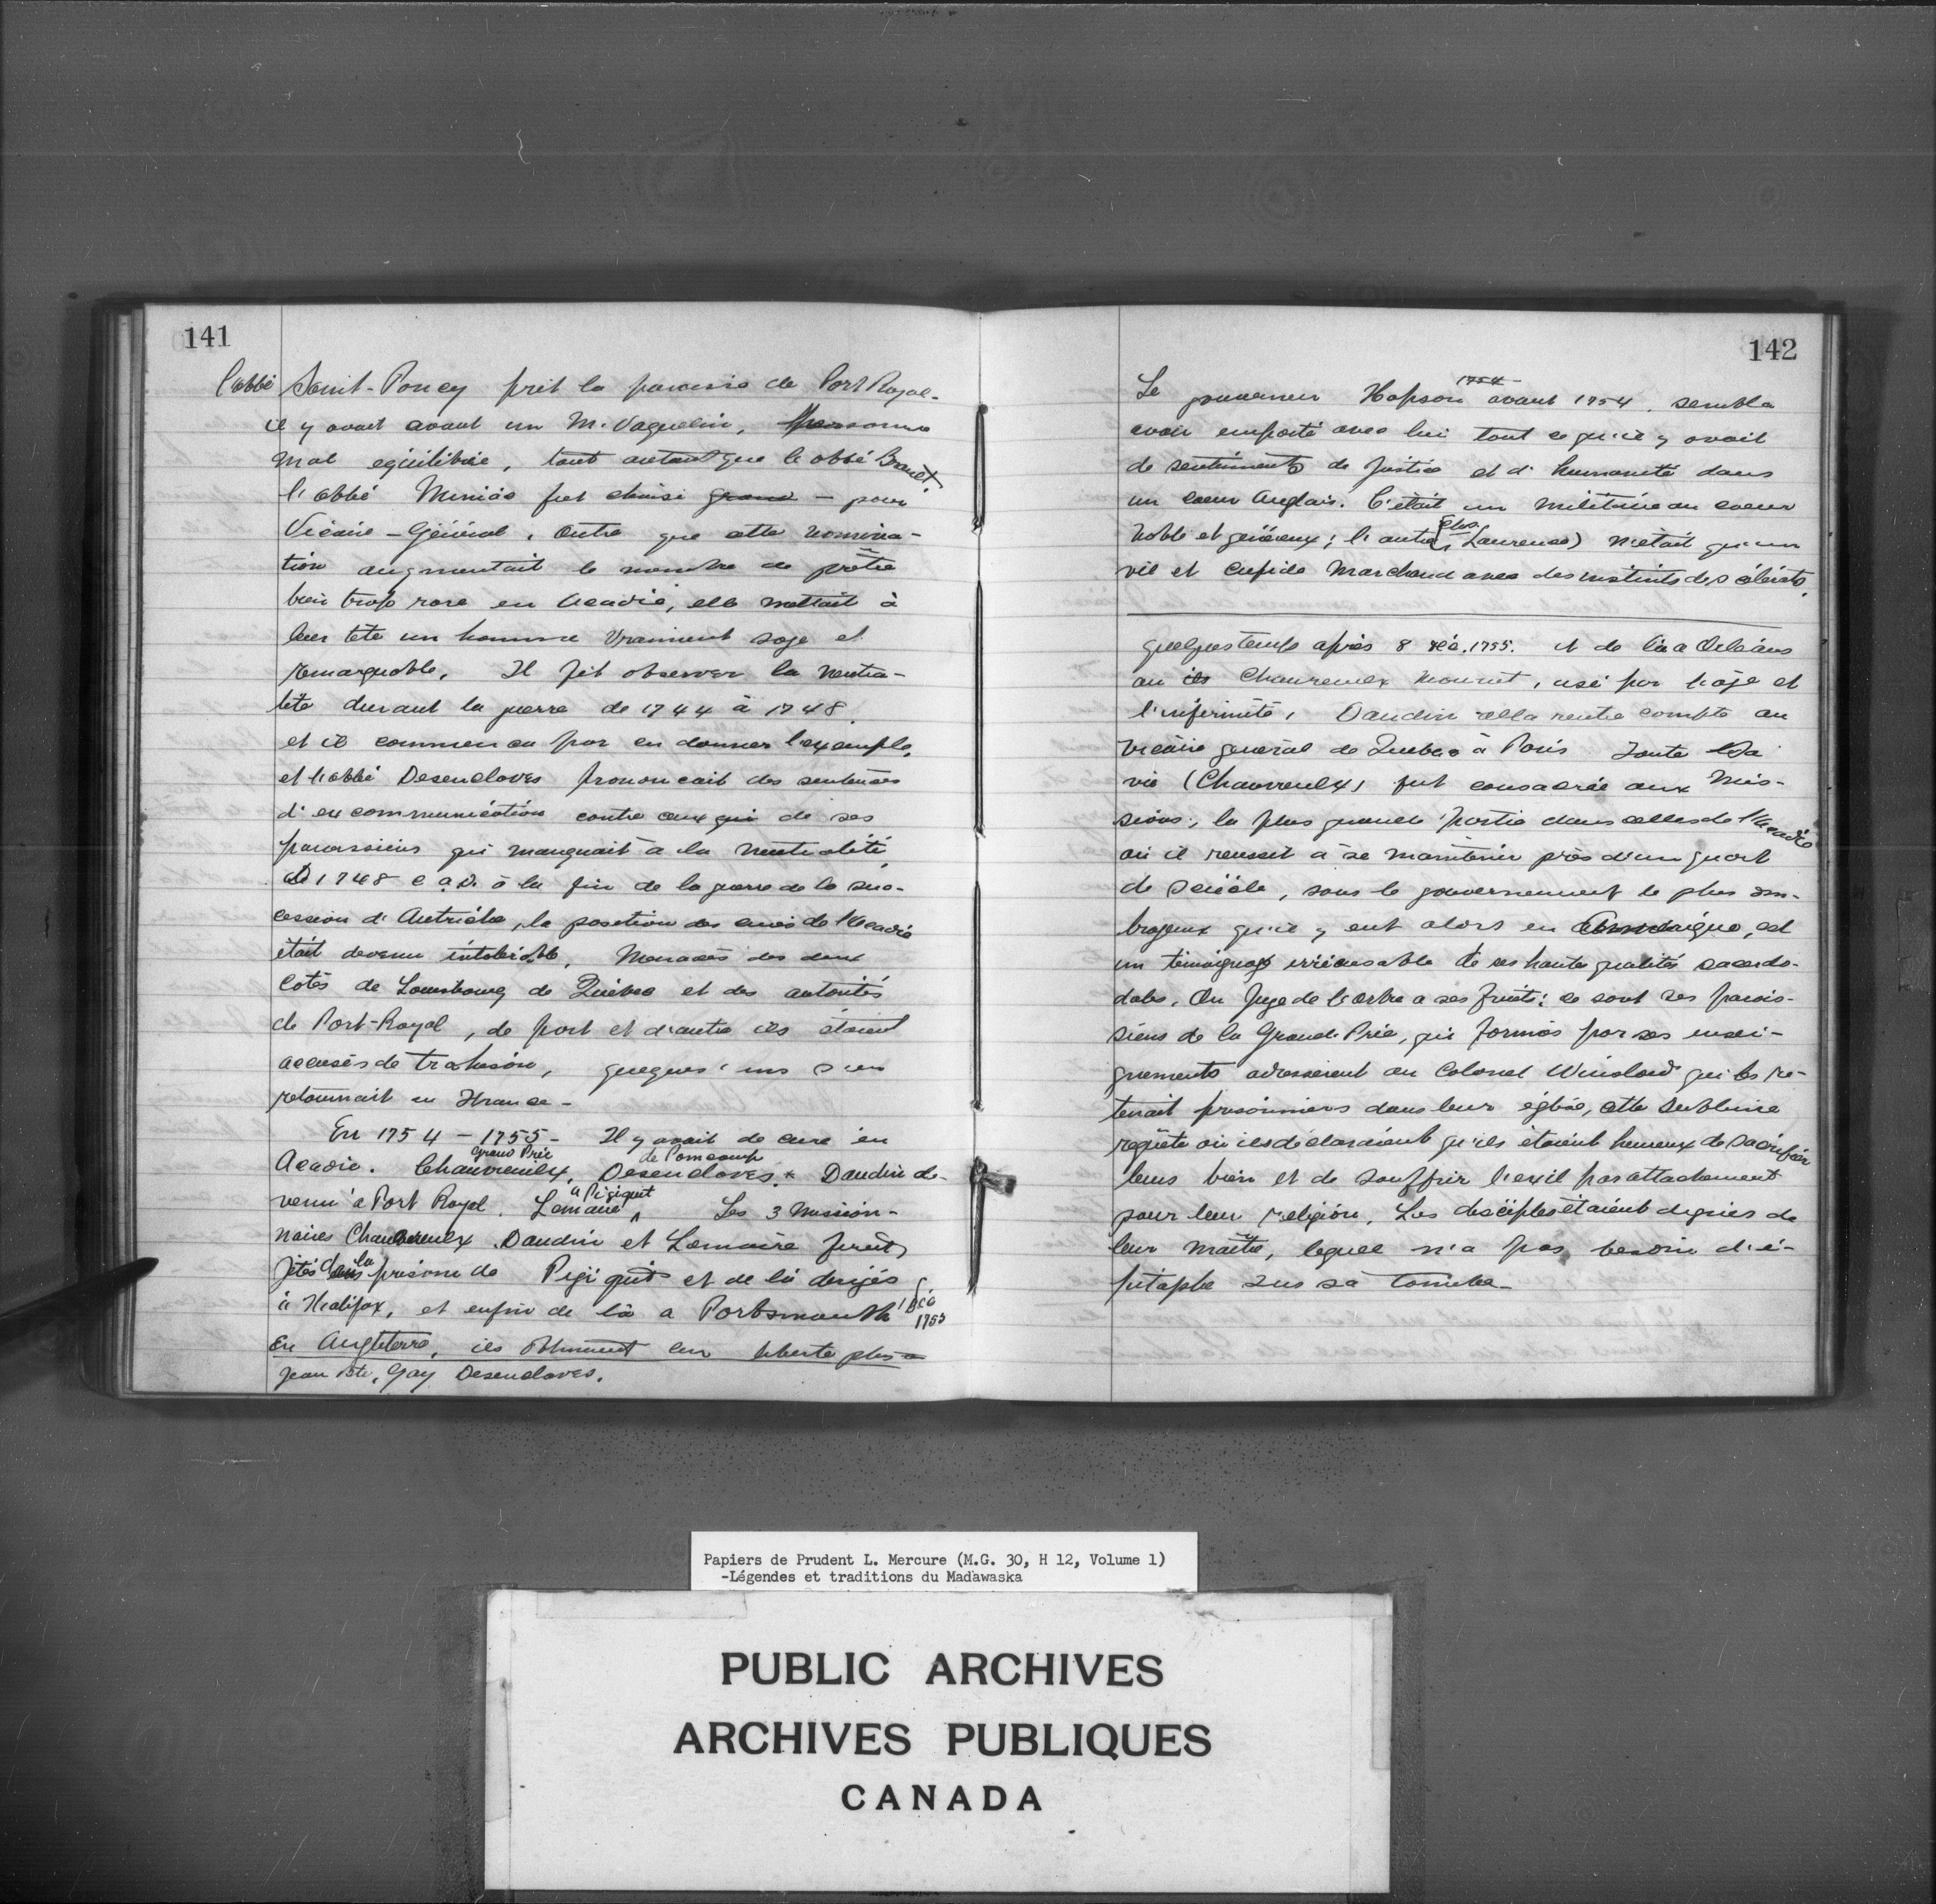 141
l'abbé Saint-Poncy prit la paroisse de Port Royal.
il y avait avant un M. Vaquelin, personne
mal equilibrée, tout autant que le abbé Brault.
l'abbé Miniac fut choisi grand - pour
Vicaire-Général. Outre que cette nomina-
tion augmentait le nombre de prêtre
bien trop rare en Acadie, elle mettait à
leur tête un homme vraiment sage et
remarquable. Il fit observer la neutra-
lité durant la guerre de 1744 à 1748.
et il commenca par en donner l'exemple.
et l'abbé Desenclaves prononcait des sentences
d'excommunication contre ceux qui de ses
paroissiens qui manquait à la neutralité.
1748 c.a.d. à la fin de la guerre de la suc-
cession d'Autriche, la position des curés de l'Acadie
était devenu intolérable. Menacés des deux
cotés de Louisbourg de Québec et des autorités
de Port-Royal, de part et d'autre ils étaient
accusés de trahison, quequ'uns s'en
retournait en France -
En 1754 - 1755 - Il y avait de cure en
Grand Prée de Pomcoup
Acadie. Chauvreulx, Desenclaves. * Daudin de-
à Pigiquit
venu à Port Royal. Lemaire ^ Les 3 mission-
naires Chauvreulx Daudin et Lemaire furent
la
jétés dans prisone de Pigiquit et de là dirigés
à Halifax, et enfin de là a Portsmouth 1 Déc
1755
En Angleterre, ils obtinrent leur liberté plus
Jean Bte. Gay Desenclaves.
142
1754 -
Le gouverneur Hopson avant 1754, sembla
avoir emporté avec lui tout ce qu'il y avait
de sentiments de justice et d'humanité dans
un coeur Anglais. C'était un militaire au coeur
Chs.
noble et généreux; l'autre (Laurence) n'était qu'un
vil et cupide marchand avec des instincts de scélérats.
quelques temps après 8 déc. 1755. et de là a Orléans
ou Chauvreulx mourut, usé par l'age et
l'infirmité. Daudin alla rentre compte au
vicaire general de Quebec à Paris Toute sa
vie (Chauvreulx) fut consacrée aux Mis-
sions; la plus grande partie dans celles de l'Acadie
où il reussit à se maintenir près d'un quart
de sciécle, sous le gouvernement le plus om-
brageux qu'il y eut alors en Amérique, est
un témoignage irrécusable de ses haute qualités sacerdo-
dales. On juge de l'arbre a ses fruits: ce sont ses parois-
siens de la Grande Prée, qui formés par ses ensei-
gnements adressèrent au Colonel Winslow qui les re-
tenait prisonniers dans leur église, cette sublime
requête où ils déclaraient qu'ils étaient heureux de sacrifier
leurs bien et de souffrir l'exil par attachement
pour leur religion. Les disciples étaient dignes de
leur maître, lequel n'a pas besoin d'é-
pitaphe sur sa tombe -
Papiers de Prudent L. Mercure (M.G. 30, H 12, Volume 1)
-Légendes et traditions du Madawaska
PUBLIC ARCHIVES
ARCHIVES PUBLIQUES
CANADA